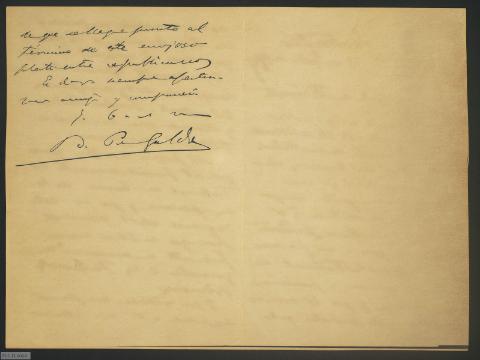 de que se llegue pronto al
término de este enojoso
pleito entre republicanos
Es de V. siempre afectísi-
mo amigo y compañero
q. b. s. m.
B. Pérez Galdós